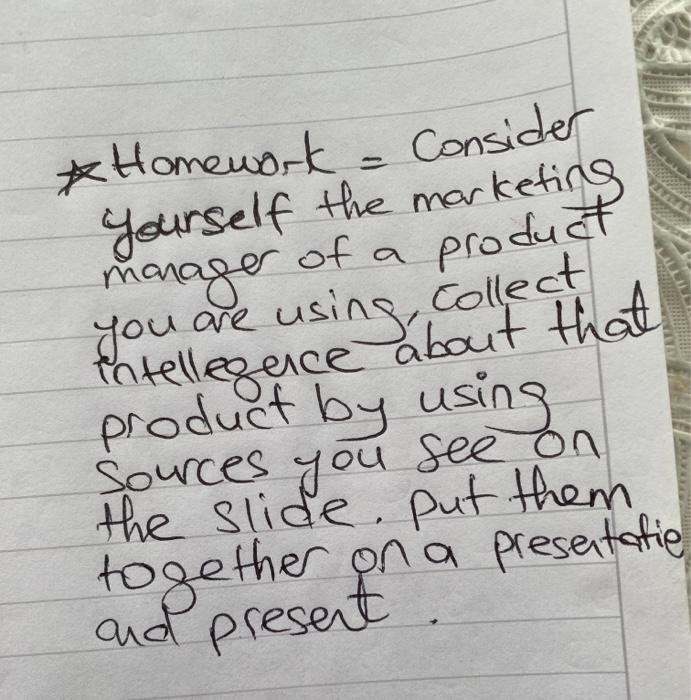 * Homework = Consider
yourself the marketing
manager of a product
you are using, collect
intellegence about that
product by using
sources you see on
the slide. put them
together on a presentatie
and present.